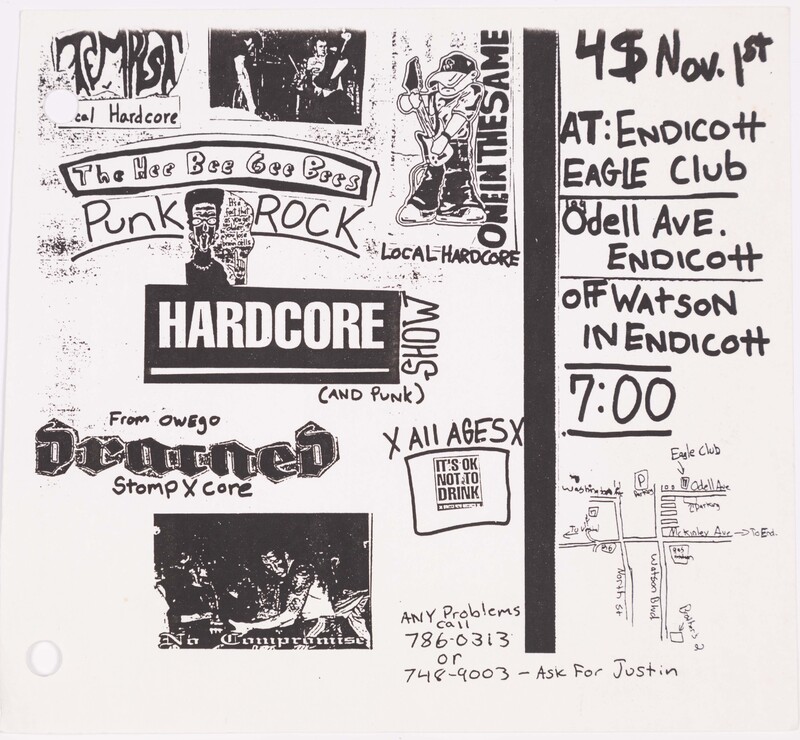 TEMPEST
cal Hardcore
The Hee Bee Gee Bees
Punk ROCK
ONE IN THE SAME
LOCAL HARDCORE
HARDCORE
SHOW
(AND PUNK)
From OWEGO
Drained
Stomp X core
X All AGES X
IT'S OK
NOT TO
DRINK
No Compromise
ANY Problems
call
786-0313
or
748-9003 - Ask For Justin
4$ Nov. 1st
AT: ENDICOTT
EAGLE Club
Odell AVE.
ENDICOTT
OFF WATSON
IN ENDICOTT
7:00
Eagle Club
P
Parking
Odell Ave
Parking
McKinley Ave → To End.
North St
Watson Blvd
gas